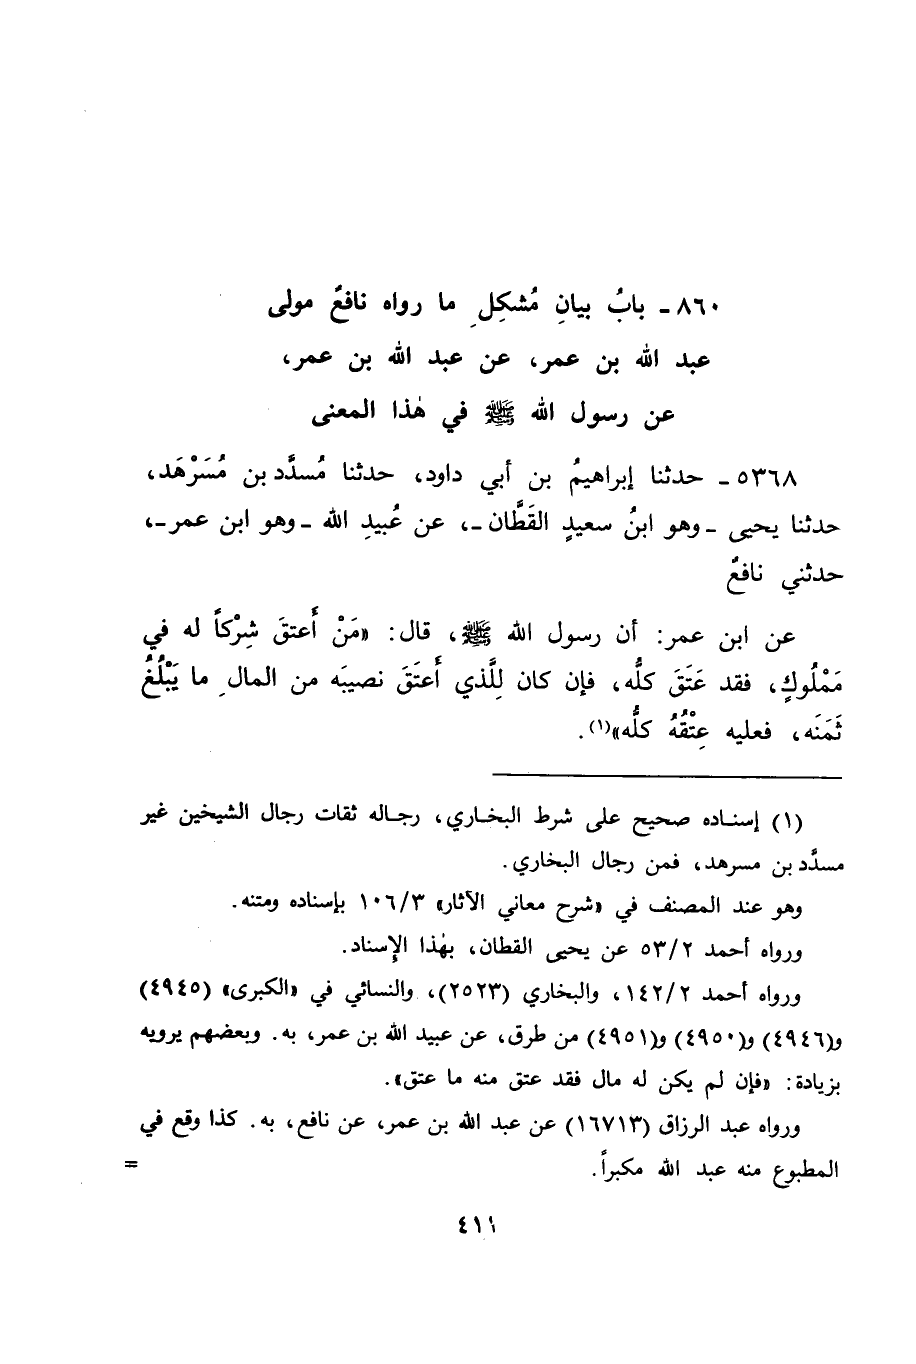 ٨٦٠ ـ بابُ بيانِ مُشكِلِ ما رواه نافعٌ مولى
عبد الله بن عمر، عن عبد الله بن عمر،
عن رسول الله ﷺ في هٰذا المعنى
٥٣٦٨ ـ حدثنا إبراهيمُ بن أبي داود، حدثنا مُسدَّد بن مُسَرْهَد،
حدثنا يحيى ـ وهو ابنُ سعيدٍ القَطَّان ـ، عن عُبيدِ الله ـ وهو ابن عمر ـ،
حدثني نافعٌ
عن ابن عمر: أن رسول الله ﷺ، قال: «مَنْ أَعتقَ شِرْكاً له في
مَمْلُوكٍ، فقد عَتَقَ كلُّه، فإن كان لِلَّذي أَعتَقَ نصيبَه من المالِ ما يَبْلُغُ
ثَمَنَه، فعليه عِتْقُهُ كلُّه»(١).
(١) إسناده صحيح على شرط البخاري، رجاله ثقات رجال الشيخين غير
مسدَّد بن مسرهد، فمن رجال البخاري.
وهو عند المصنف في «شرح معاني الآثار» ١٠٦/٣ بإسناده ومتنه.
ورواه أحمد ٥٣/٢ عن يحيى القطان، بهٰذا الإسناد.
ورواه أحمد ١٤٢/٢، والبخاري (٢٥٢٣)، والنسائي في «الكبرى» (٤٩٤٥)
و(٤٩٤٦) و(٤٩٥٠) و(٤٩٥١) من طرق، عن عبيد الله بن عمر، به. وبعضهم يرويه
بزيادة: «فإن لم يكن له مال فقد عتق منه ما عتق».
ورواه عبد الرزاق (١٦٧١٣) عن عبد الله بن عمر، عن نافع، به. كذا وقع في
المطبوع منه عبد الله مكبراً. =
٤١١